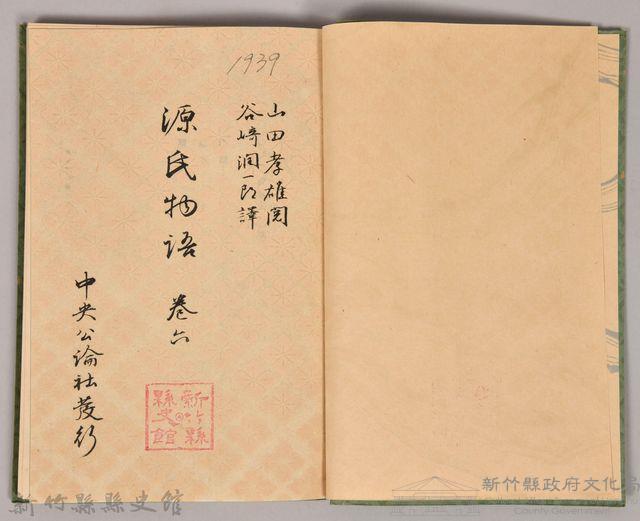 1939
山田孝雄閲
谷崎潤一郎譯
源氏物語 巻六
中央公論社發行
新竹縣
縣史館
新竹縣縣史館
新竹縣政府文化局
County Government